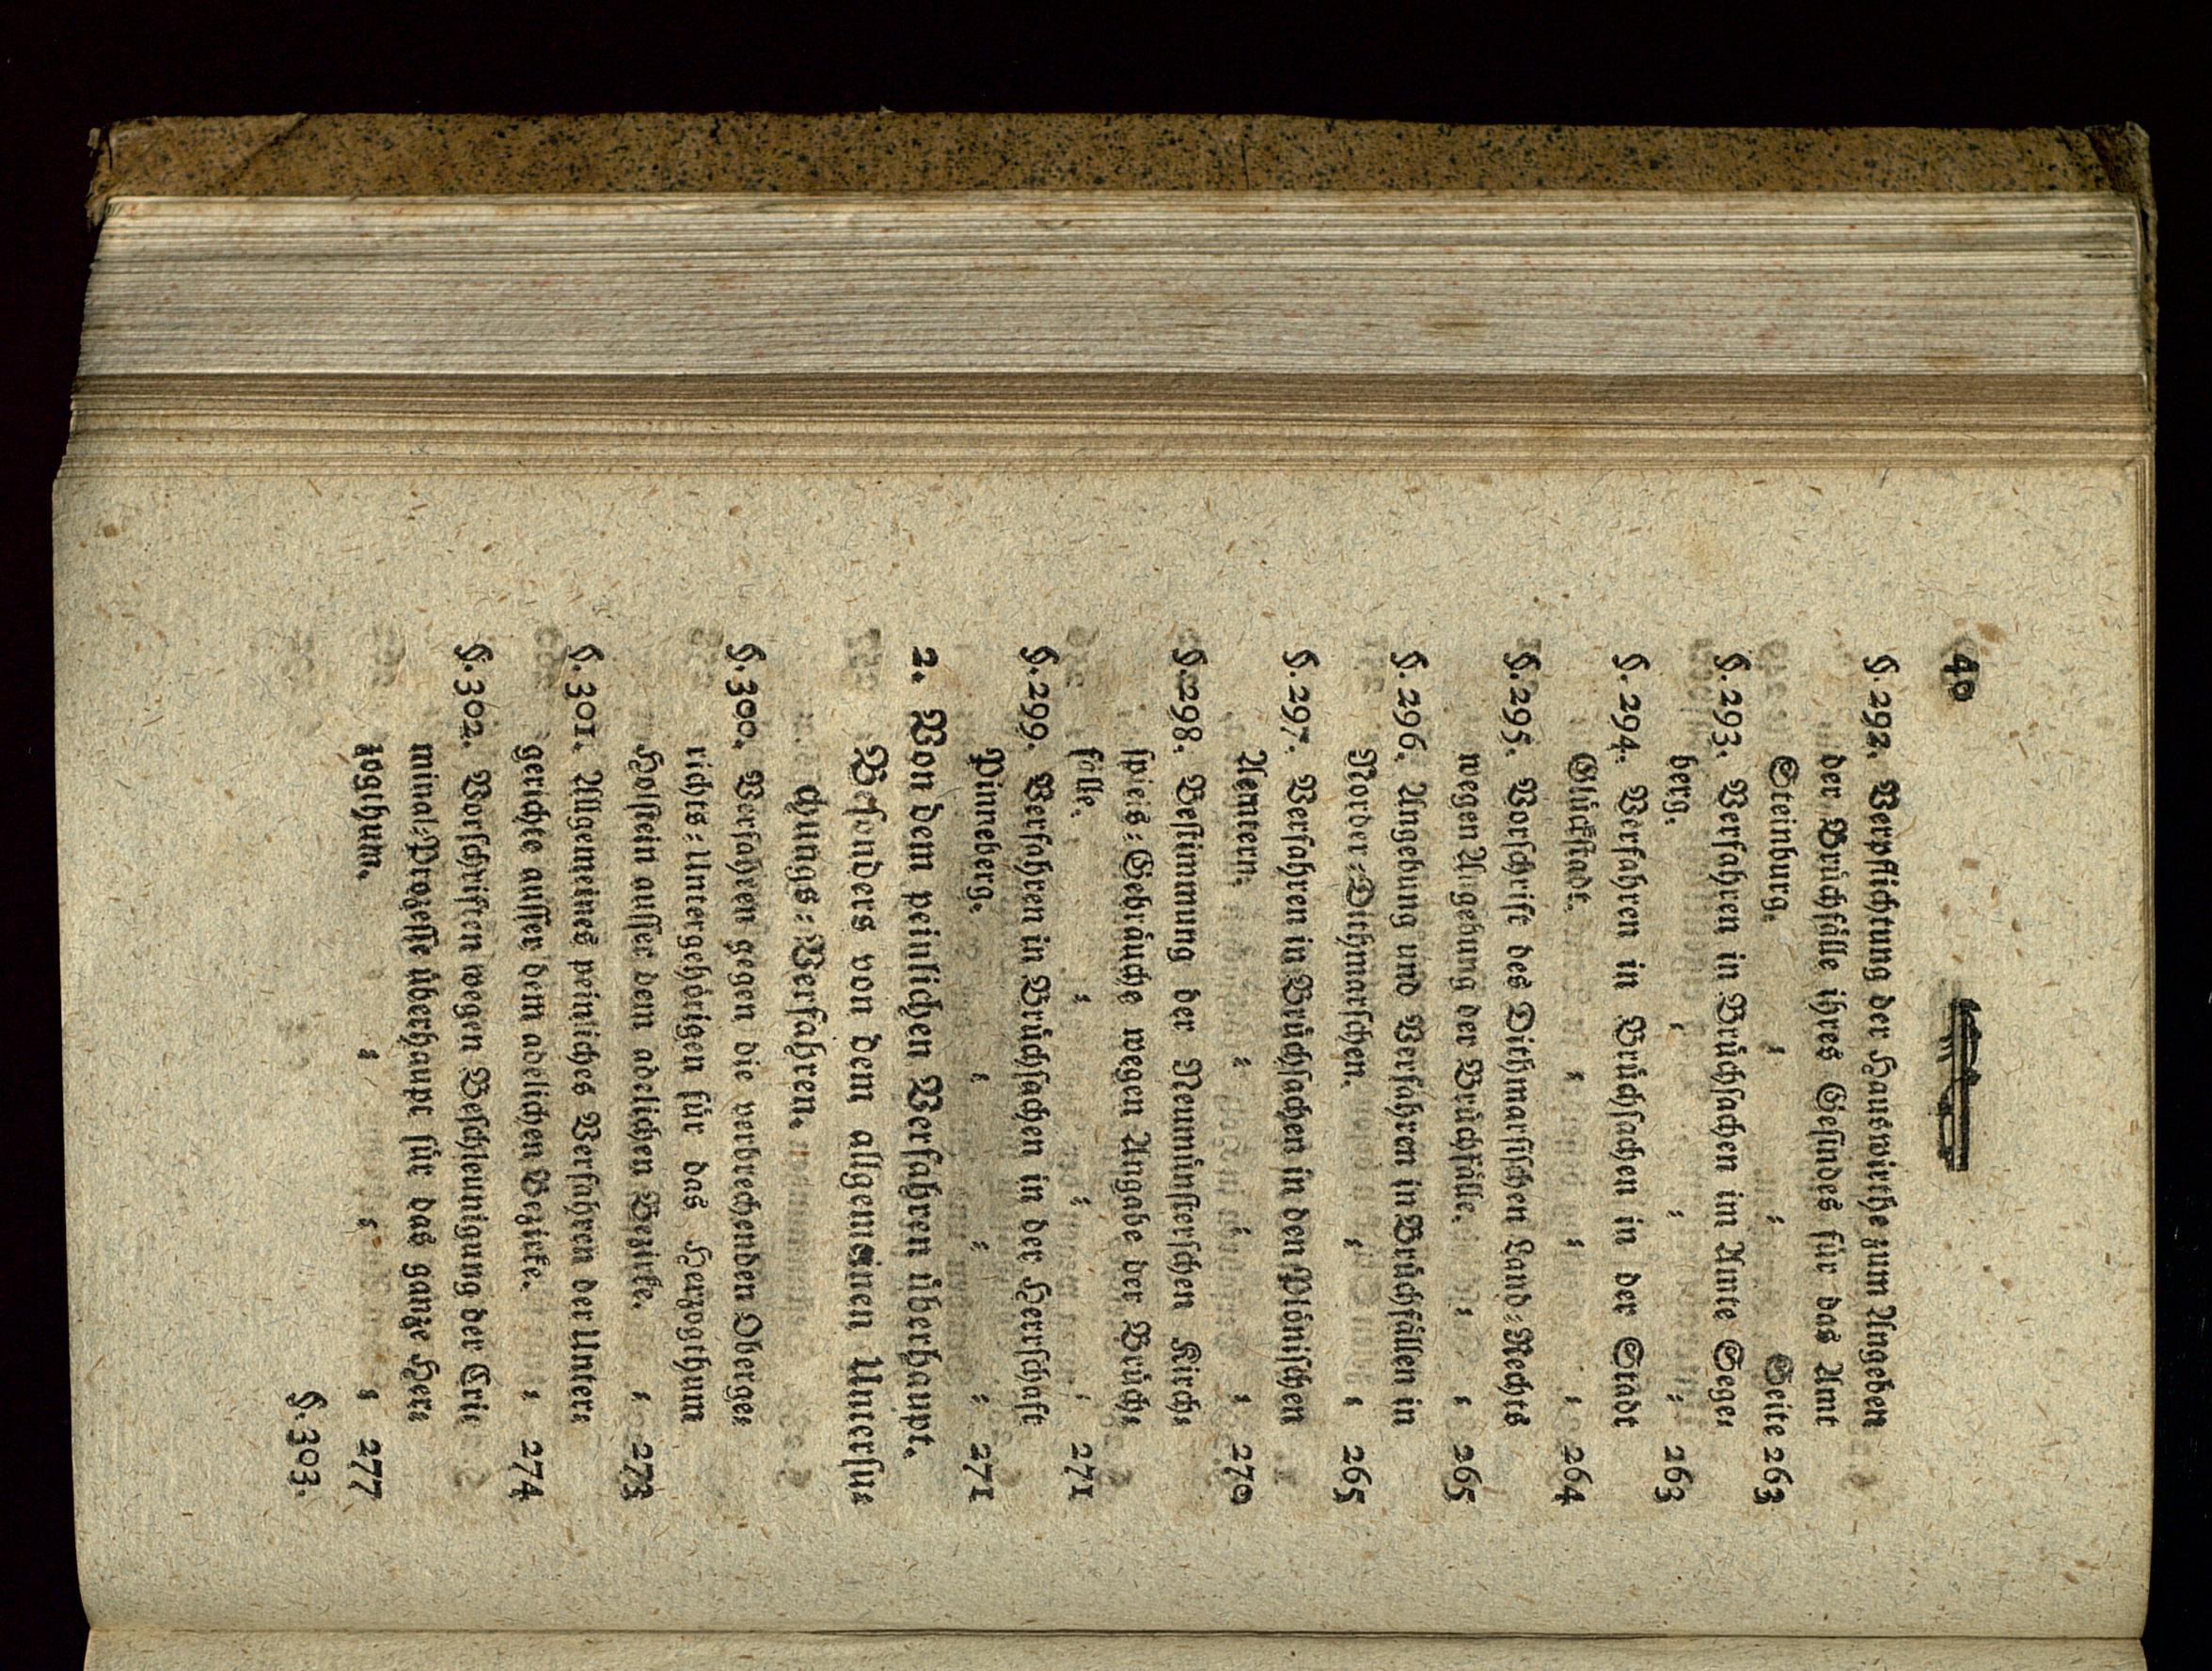 40
§. 292. Verpflichtung der Hauswirthe zum Angeben
der Brüchfälle ihres Gesindes für das Amt
Steinburg. = = Seite 263
§. 293. Verfahren in Brüchsachen im Amte Sege=
berg. = = = 263
§. 294. Verfahren in Brüchsachen in der Stadt
Glückstadt. = = = 264
§. 295. Vorschrift des Dithmarsischen Land=Rechts
wegen Angebung der Brüchfälle. = = 265
§. 296. Angebung und Verfahren in Brüchfällen in
Norder=Dithmarschen. = = 265
§. 297. Verfahren in Brüchsachen in den Plönischen
Aemtern. = = = 270
§. 298. Bestimmung der Neumünsterschen Kirch=
spiels=Gebräuche wegen Angabe der Brüch=
fälle. = = = 271
§. 299. Verfahren in Brüchsachen in der Herrschaft
Pinneberg. = = = 271
2. Von dem peinlichen Verfahren überhaupt.
Besonders von dem allgemeinen Untersu=
chungs=Verfahren.
§. 300. Verfahren gegen die verbrechenden Oberge=
richts=Untergehörigen für das Herzogthum
Holstein ausser dem adelichen Bezirke. = 273
§. 301. Allgemeines peinliches Verfahren der Unter=
gerichte ausser dem adelichen Bezirke. = 274
§. 302. Vorschriften wegen Beschleunigung der Cri=
minal=Prozesse überhaupt für das ganze Her=
zogthum. = = = 277
§. 303.